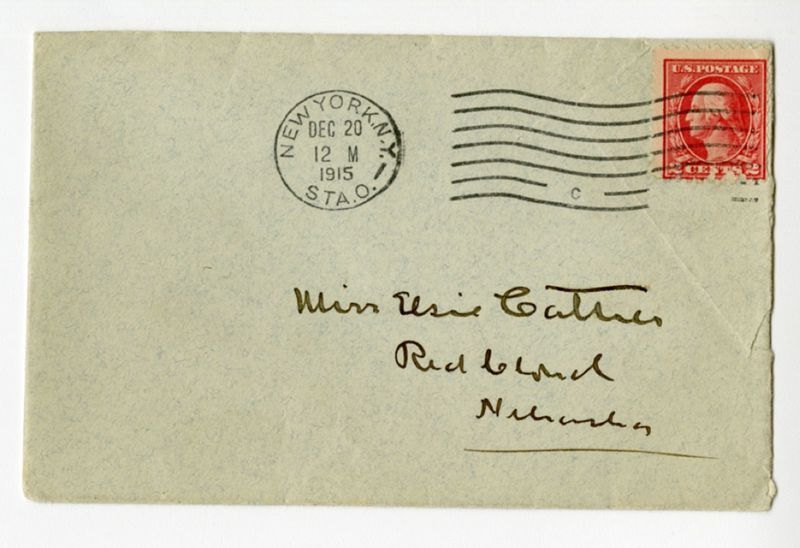 NEW YORK, N.Y.
DEC 20
12 M
1915
STA. O.
C
U.S. POSTAGE
2 CENTS 2
Miss Elsie Cather
Red Cloud
Nebraska